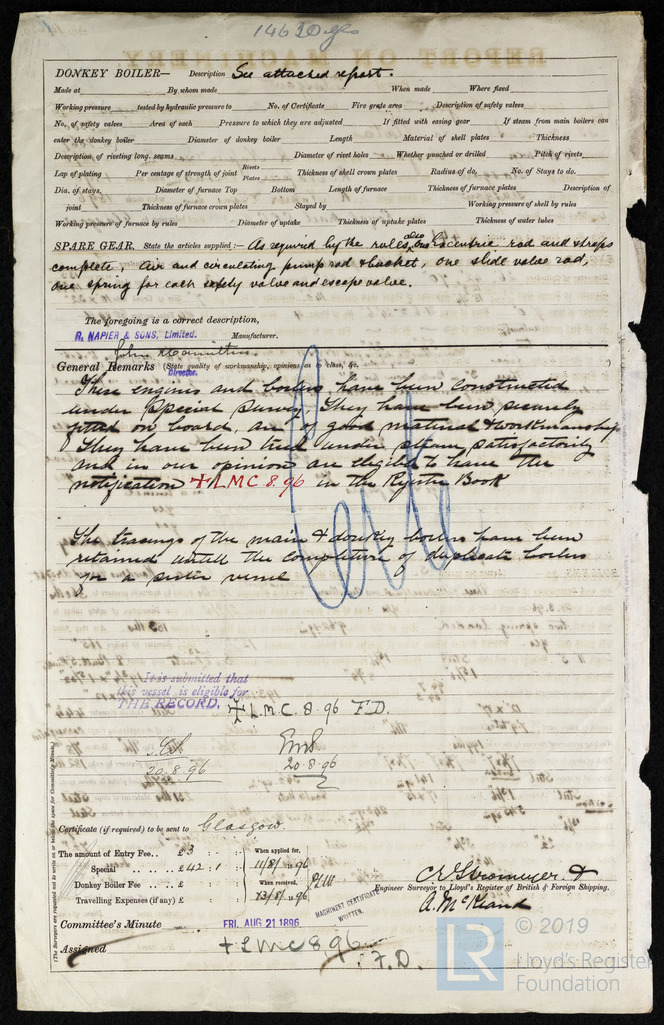 14610 gls
DONKEY BOILER— Description See attached report.
Made at By whom made When made Where fixed
Working pressure tested by hydraulic pressure to No. of Certificate Fire grate area Description of safety valves
No. of safety valves Area of each Pressure to which they are adjusted If fitted with easing gear If steam from main boilers can
enter the donkey boiler Diameter of donkey boiler Length Material of shell plates Thickness
Description of riveting long. seams Diameter of rivet holes Whether punched or drilled Pitch of rivets
Lap of plating Per centage of strength of joint Rivets Plates Thickness of shell crown plates Radius of do. No. of Stays to do.
Dia. of stays. Diameter of furnace Top Bottom Length of furnace Thickness of furnace plates Description of
joint Thickness of furnace crown plates Stayed by Working pressure of shell by rules
Working pressure of furnace by rules Diameter of uptake Thickness of uptake plates Thickness of water tubes
SPARE GEAR. State the articles supplied:— As required by the rules, also one Eccentric rod and straps
complete, air and circulating pump rod & bucket, one slide valve rod,
one spring for each safety valve and escape valve.
The foregoing is a correct description,
R. NAPIER & SONS, Limited. Manufacturer.
John
Director.
General Remarks (State quality of workmanship, opinions as to class, &c.
These engines and boilers have been constructed
under Special Survey. They have been securely
fitted on board, are of good material & workmanship
They have been tried under steam, satisfactorily
and in our opinion are eligible to have the
notification + LMC 8.96 in the Register Book
The tracings of the main & donkey boilers have been
retained untill the completion of duplicate boilers
for a sister vessel
It is submitted that
this vessel is eligible for
THE RECORD. + L.M.C. 8.96 F.D.
20.8.96 20.8.96
Certificate (if required) to be sent to Glasgow.
The amount of Entry Fee.. £ 3 : : When applied for,
Special .. .. £ 42.1 : 11/8/ 1896
Donkey Boiler Fee .. .. £ : : When received,
Travelling Expenses (if any) £ : : 13/8/ 1896
MACHINERY CERTIFICATE
WRITTEN.
C. E. Stromeyer &
Engineer Surveyor to Lloyd's Register of British & Foreign Shipping.
A. McKeand
Committee's Minute FRI. AUG 21 1896
Assigned + LMC 8.96
F.D.
(The Surveyors are requested not to write on or below the space for Committee's Minute.)
© 2019
LR
Lloyd's Register
Foundation